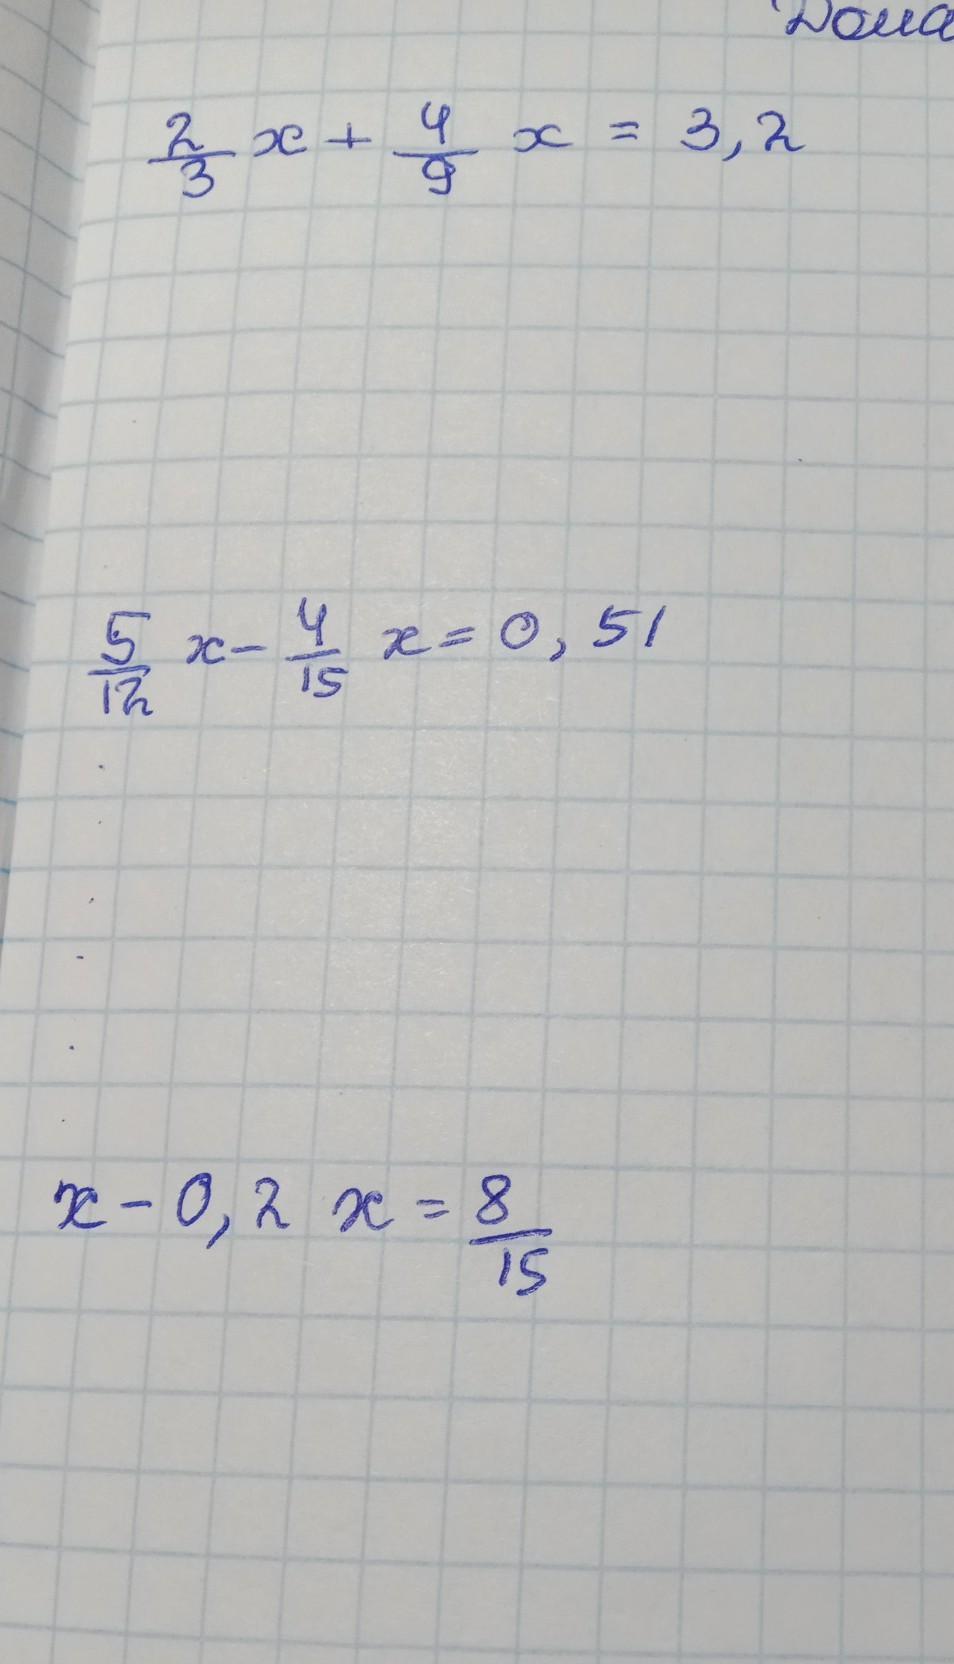 2/3 x + 4/9 x = 3,2
5/12 x - 4/15 x = 0,51
x - 0,2 x = 8/15